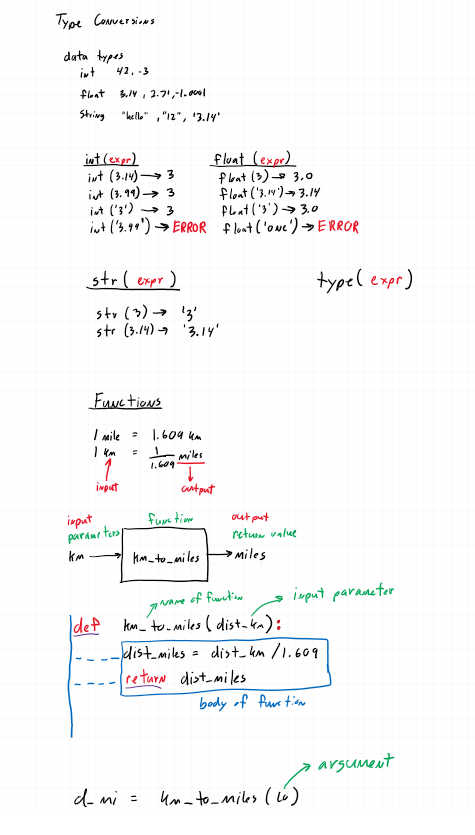 Type Conversions
data types
int 42, -3
float 3.14, 2.71, -1.0001
String "hello", "12", '3.14'
int(expr)
int (3.14) → 3
int (3.99) → 3
int ('3') → 3
int ('3.99') → ERROR
float (expr)
float (3) → 3.0
float ('3.14') → 3.14
float ('3') → 3.0
float ('one') → ERROR
str ( expr )
str (3) → '3'
str (3.14) → '3.14'
type( expr )
Functions
1 mile = 1.609 km
1 km = 1/1.609 miles
input output
input function output
parameters return value
km → km_to_miles → miles
name of function input parameter
def km_to_miles (dist_km):
dist_miles = dist_km / 1.609
return dist_miles
body of function
argument
d_mi = km_to_miles (10)